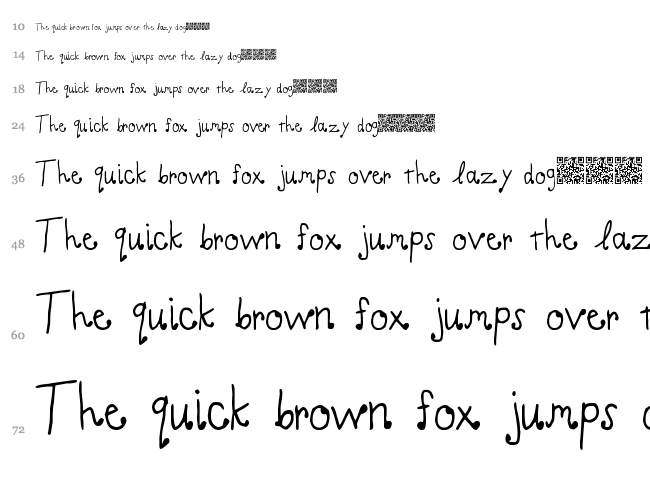 10 The quick brown fox jumps over the lazy dog
14 The quick brown fox jumps over the lazy dog
18 The quick brown fox jumps over the lazy dog
24 The quick brown fox jumps over the lazy dog
36 The quick brown fox jumps over the lazy dog
48 The quick brown fox jumps over the laz
60 The quick brown fox jumps over t
72 The quick brown fox jumps